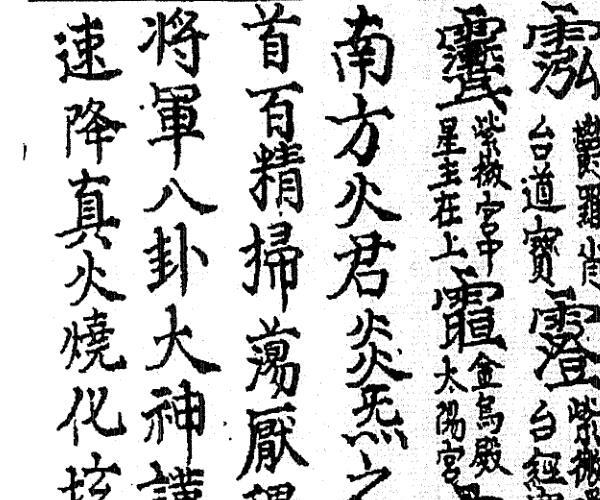 鬱羅肖
台道寳
紫微
台經
紫微宮中
星主在上
金烏殿
太陽宮
南方火君炎炁之
首百精掃蕩厭
將軍八卦大神謹
速降真火燒化